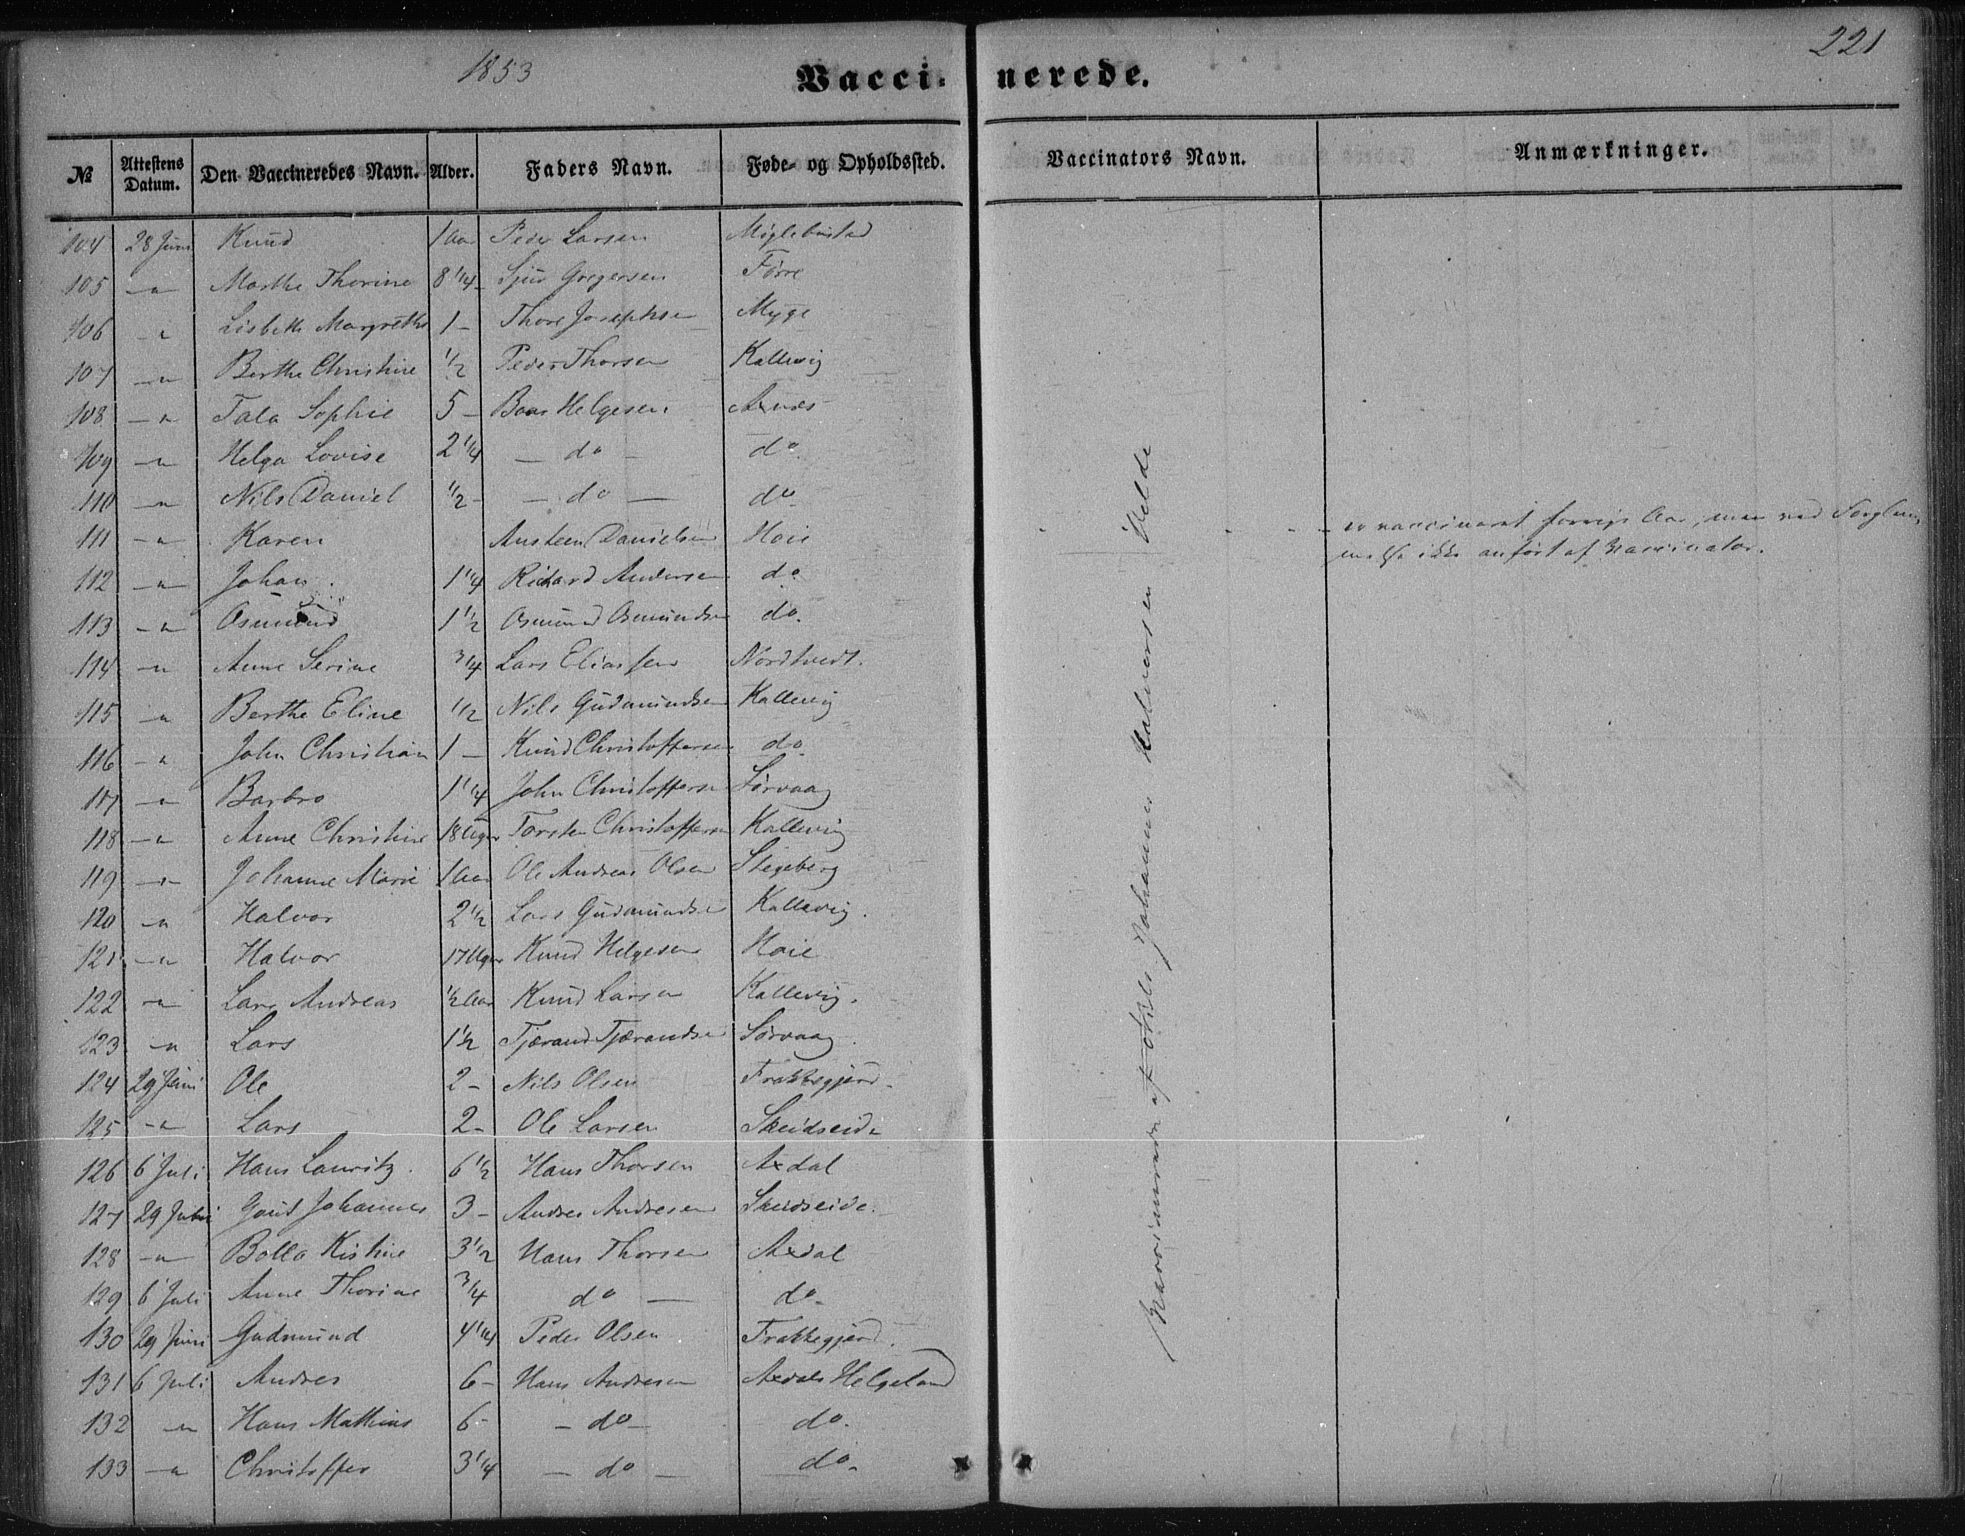 1853
Vaccinerede.
221
№ Attestens Datum. Den Vaccineredes Navn. Alder. Faders Navn. Føde- og Opholdssted. Vaccinators Navn. Anmærkninger.
104 28 Juni Knud 1 Aar Peder Larsen
105 —"— Marthe Thorine 8 1/4 — Sjur Gregersen Førre
106 " Lisbeth Margrethe 1 — Thore Josephsen Myge
107 —"— Berthe Christine 1/2 Peder Thorsen Kallevig
108 —"— Tala Sophie 5 — Baar Helgesen
109 —"— Helga Lovise 2 1/4 — do — do
110 —"— Nils Daniel 1/2 — — do — do
111 —"— Karen Austeen Danielsen Hoie er vaccineret forrige Aar, men ved Forglem-
melse ikke anført af Vaccinator.
112 —"— Johan 1 1/4 Richard Andersen do
113 —"— Osmund 1 1/2 Osmund Osmundsen do.
114 —"— Anne Serine 3/4 Lars Eliassen Nordtvedt.
115 —"— Berthe Eline 1/2 Nils Gudmundsen Kallevig
116 —"— John Christian 1 — Knud Christoffersen do
117 —"— Barbro 1 1/4 John Christoffersen Sørvaag
118 —"— Anne Christine 18 Uger Torsten Christoffersen Kallevig
119 —"— Johanne Marie 1 Aar Ole Andreas Olsen Stegeberg
120 —"— Halvor 2 1/2 Lars Gudmundsen Kallevig.
121 —"— Halvor 17 Uger Knud Helgesen Hoie
122 —"— Lars Andreas 1/2 Aar Knud Larsen Kallevig.
123 —"— Lars 1 1/2 Tjærand Tjærandsen Sørvaag.
124 29 Juni Ole 2 — Nils Olsen Frakkegjerd.
125 —"— Lars 2 — Ole Larsen Skeidseide
126 6 Juli Hans Lauritz. 6 1/2 Hans Thorsen Axdal
127 29 Juni Johannes 3 — Andres Andresen Skeidseide.
128 —"— Bolla Kistine 3 1/2 Hans Thorsen Axdal
129 6 Juli Anne Thorine 3/4 do — do
130 29 Juni Gudmund 4 1/4 Peder Olsen Frakkegjerd.
131 6 Juli Andres 6 — Hans Andresen Axdals Helgeland
132 —"— Hans Mathias 6 — do — do.
133 —"— Christoffer 3 1/4 — do — do.
Vaccinerede af Johannes Halvorsen Velde